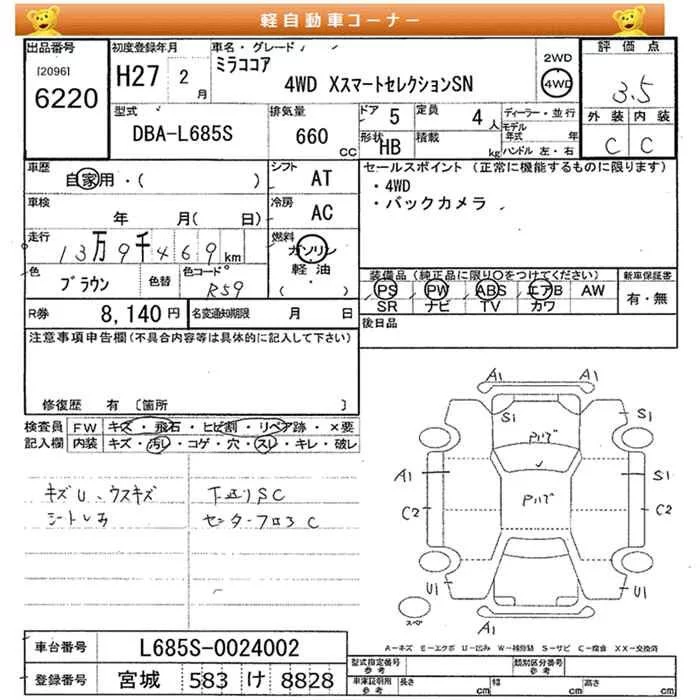 軽自動車コーナー
出品番号
[2096]
6220
初度登録年月
H27 2月
車名・グレード
ミラココア
4WD XスマートセレクションSN
2WD
4WD
評価点
3.5
外装 内装
C C
型式
DBA-L685S
排気量
660 CC
ドア 5
定員 4人
形状 HB
積載 kg
ディーラー・並行
モデル年式 年
ハンドル 左・右
車歴
自家用・( )
シフト AT
セールスポイント (正常に機能するものに限ります)
・4WD
・バックカメラ
車検
年 月( 日)
冷房 AC
走行
13万9千469km
燃料
ガソリン
軽・油
( )
色
ブラウン
色替
色コード
R59
装備品(純正品に限り○をつけてください)
PS PW ABS エアB AW
SR ナビ TV カワ
新車保証書
有・無
R券 8,140円
名変通知期限 月 日
後日品
注意事項申告欄(不具合内容等は具体的に記入して下さい)
修復歴 有 [箇所 ]
検査員記入欄
FW キズ・飛石・ヒビ割・リペア跡・×要
内装 キズ・汚レ・コゲ・穴・スレ・キレ・破レ
キズU、ウスキズ
下廻りSC
A1 A1
S1 S1
A1 S1
C2 C2
U1 U1
A1
スペア
A-キズ E-エクボ U-凹み W-補修跡 S-サビ C-腐食 XX-交換済
車台番号 L685S-0024002
登録番号 宮城 583 け 8828
型式指定番号
参考
類別区分番号
参考
車庫証明用
参考
長さ cm 幅 cm 高さ cm